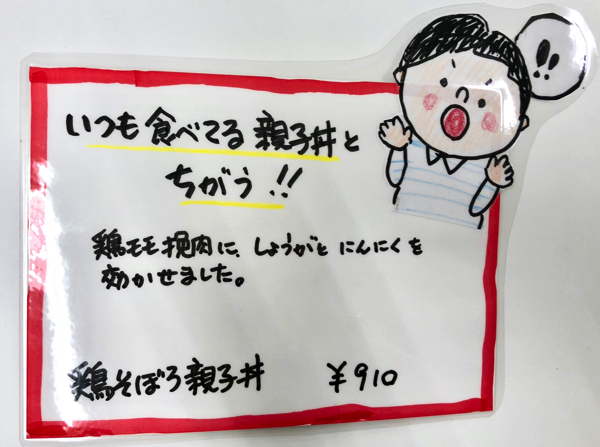 !!
いつも食べてる親子丼と
ちがう!!
鶏モモ挽肉に、しょうがとにんにくを
効かせました。
鶏そぼろ親子丼 ¥910